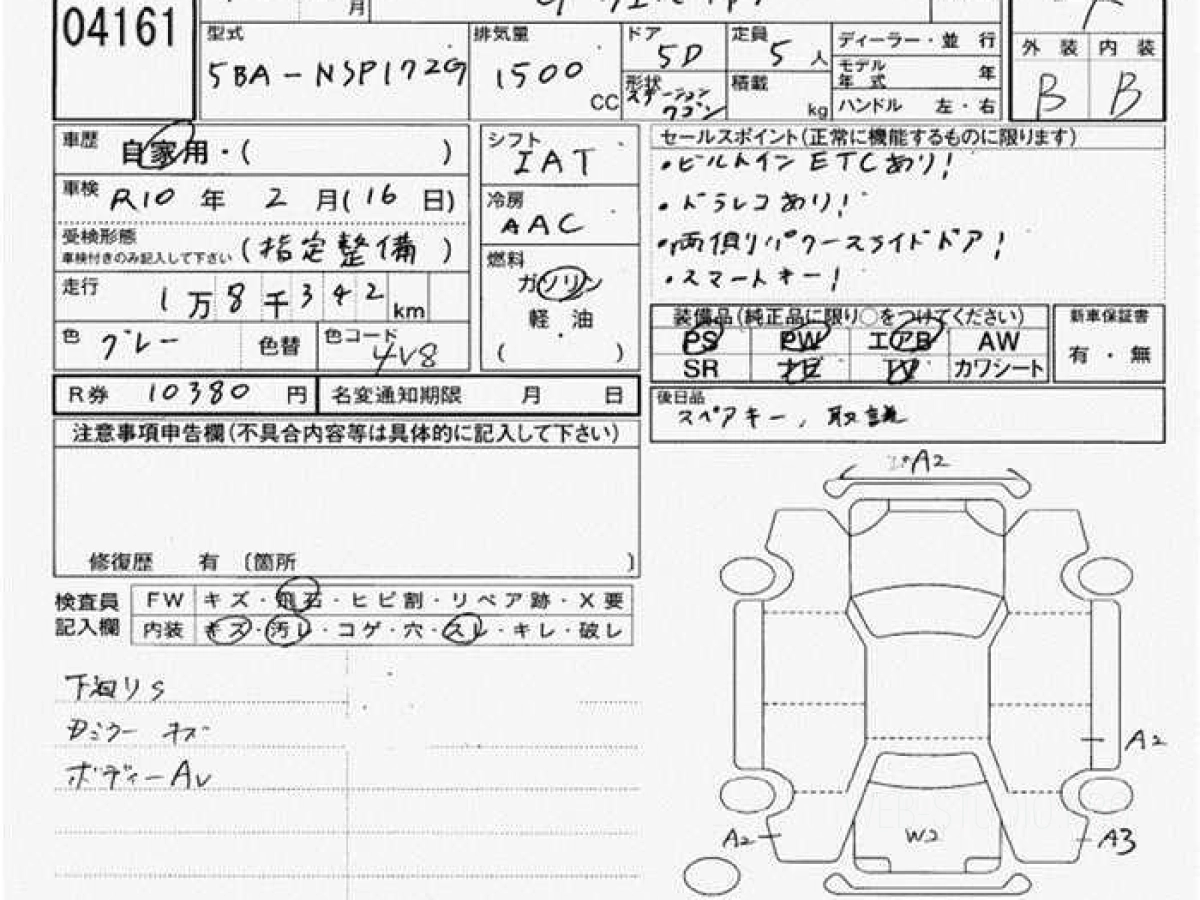 04161
月
型式
5BA-NSP172G
排気量
1500
CC
ドア
5D
形状
ステーション
ワゴン
定員
5 人
積載
kg
ディーラー・並 行
モデル
年 式
年
ハンドル 左・右
外 装 内 装
B B
車歴 自家用・( )
車検 R10 年 2 月(16 日)
受検形態
車検付きのみ記入して下さい
(指定整備)
走行 1万8千342 km
色 グレー 色替 色コード 4V8
シフト
IAT
冷房
AAC
燃料
ガソリン
軽 油
( )
セールスポイント(正常に機能するものに限ります)
・ビルトインETCあり!
・ドラレコあり!
・両側パワースライドドア!
・スマートキー!
装備品(純正品に限り○をつけてください)
PS PW エアB AW
SR ナビ TV カワシート
新車保証書
有 ・ 無
R券 10380 円 名変通知期限 月 日
後日品
スペアキー、取説
注意事項申告欄(不具合内容等は具体的に記入して下さい)
修復歴 有 〔箇所 〕
検査員
記入欄
FW キズ・飛石・ヒビ割・リペア跡・X要
内装 キズ・汚レ・コゲ・穴・スレ・キレ・破レ
S
ミラー キズ
ボディーAU
A2
A2
A2
W2
A3